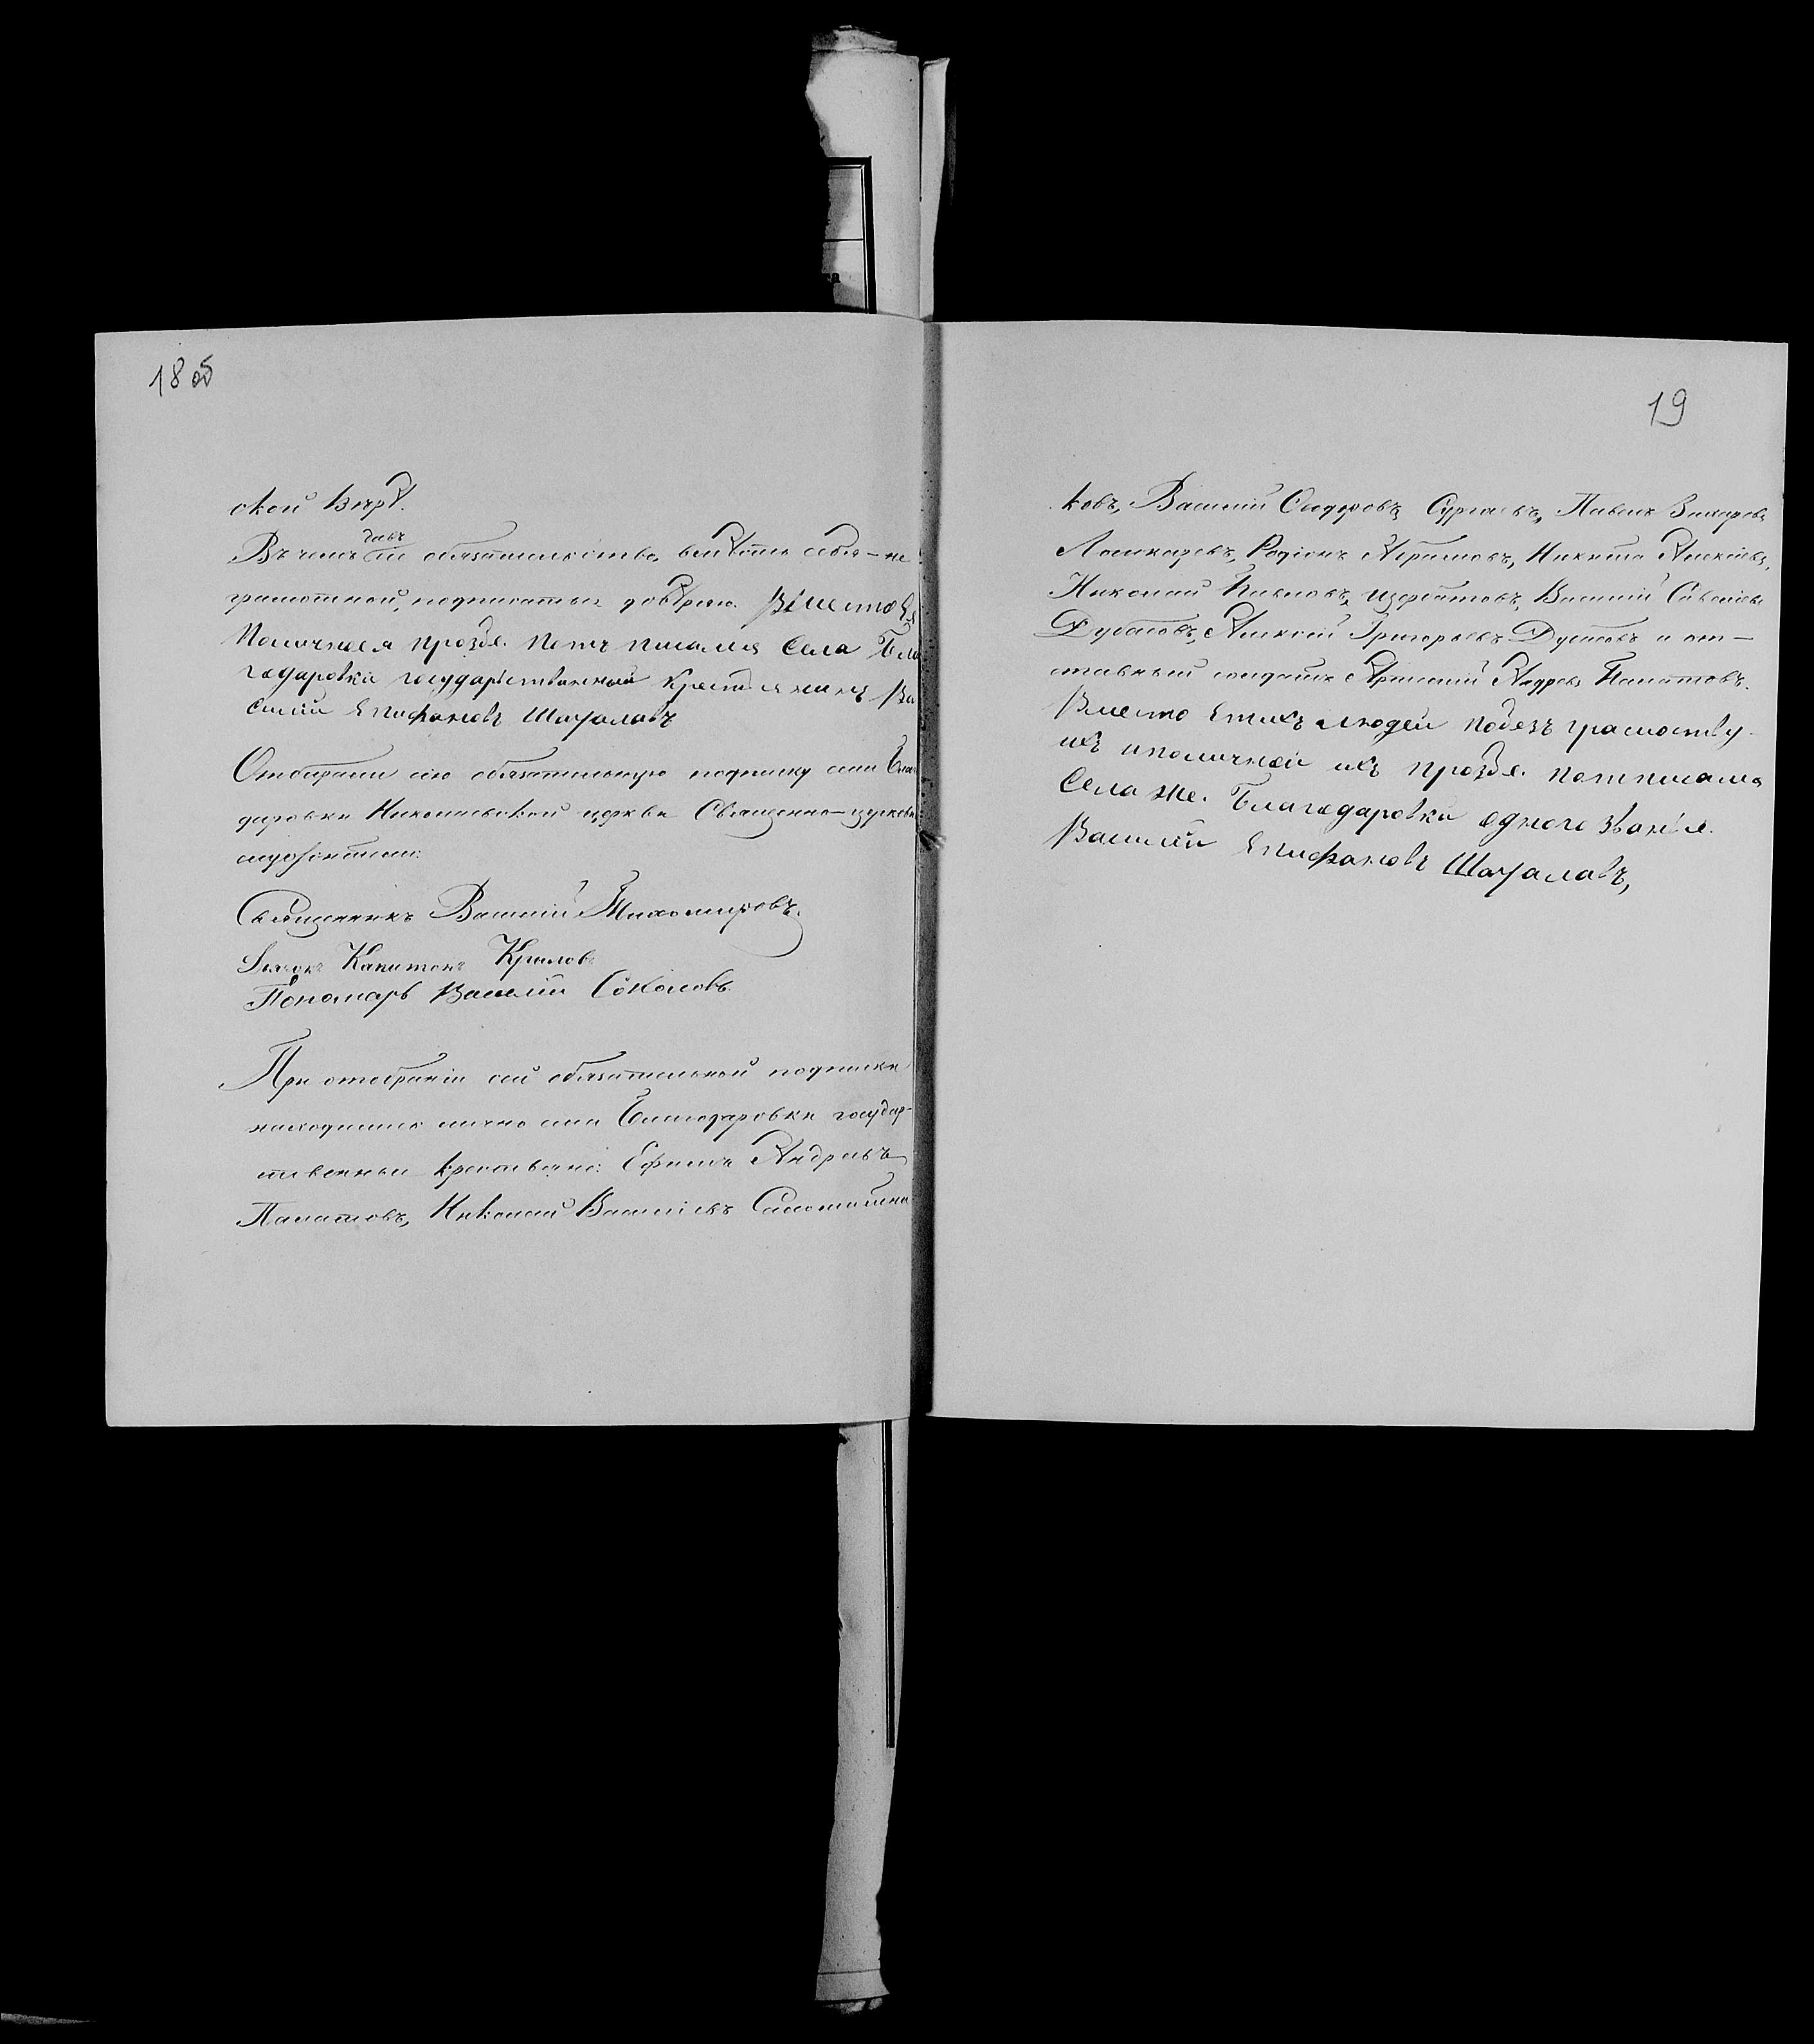 18 об
ской Вѣрѣ.
давъ
Въ чемъ сіе обязательство, вмѣсто себя – не
грамотной, подписатьсе довѣряю. Вместо Ея
Поличнея прозбе. Потъ писался Села Бла
годаровки государственной крестьянинъ Ва
силий Епифановъ Шаталавъ
Отбирали сію обязательную подписку села Благо
даровки Никольской церкви Священно-церковно
служители:
Священникъ Василій Тихомировъ.
Дьячокъ Капитонъ Крыловъ
Пономарь Василій Соколовъ
При отобраніи сей обязательной подписки
находились лично села Благодаровки государ-
ственные крестьяне: Ефимъ Андреевъ
Палатовъ, Николай Васильевъ
19
ковъ, Василій Сидоровъ Сургаевъ, Павелъ Захаровъ
Лошкаревъ, Родіонъ Абрамовъ, Никита Алексѣевъ,
Николай Павловъ Щербатовъ, Василій Савельевъ
Дубатовъ, Алексѣй Григорьевъ Дустовъ и от–
ставный солдатъ Андреевъ Палатовъ.
Вместо Етихъ людей побезъ грамоству
ихъ иполичней ихъ прозбе. потписался
Села же. Благодаровки одного званія.
Василий Епифановъ Шаталавъ,